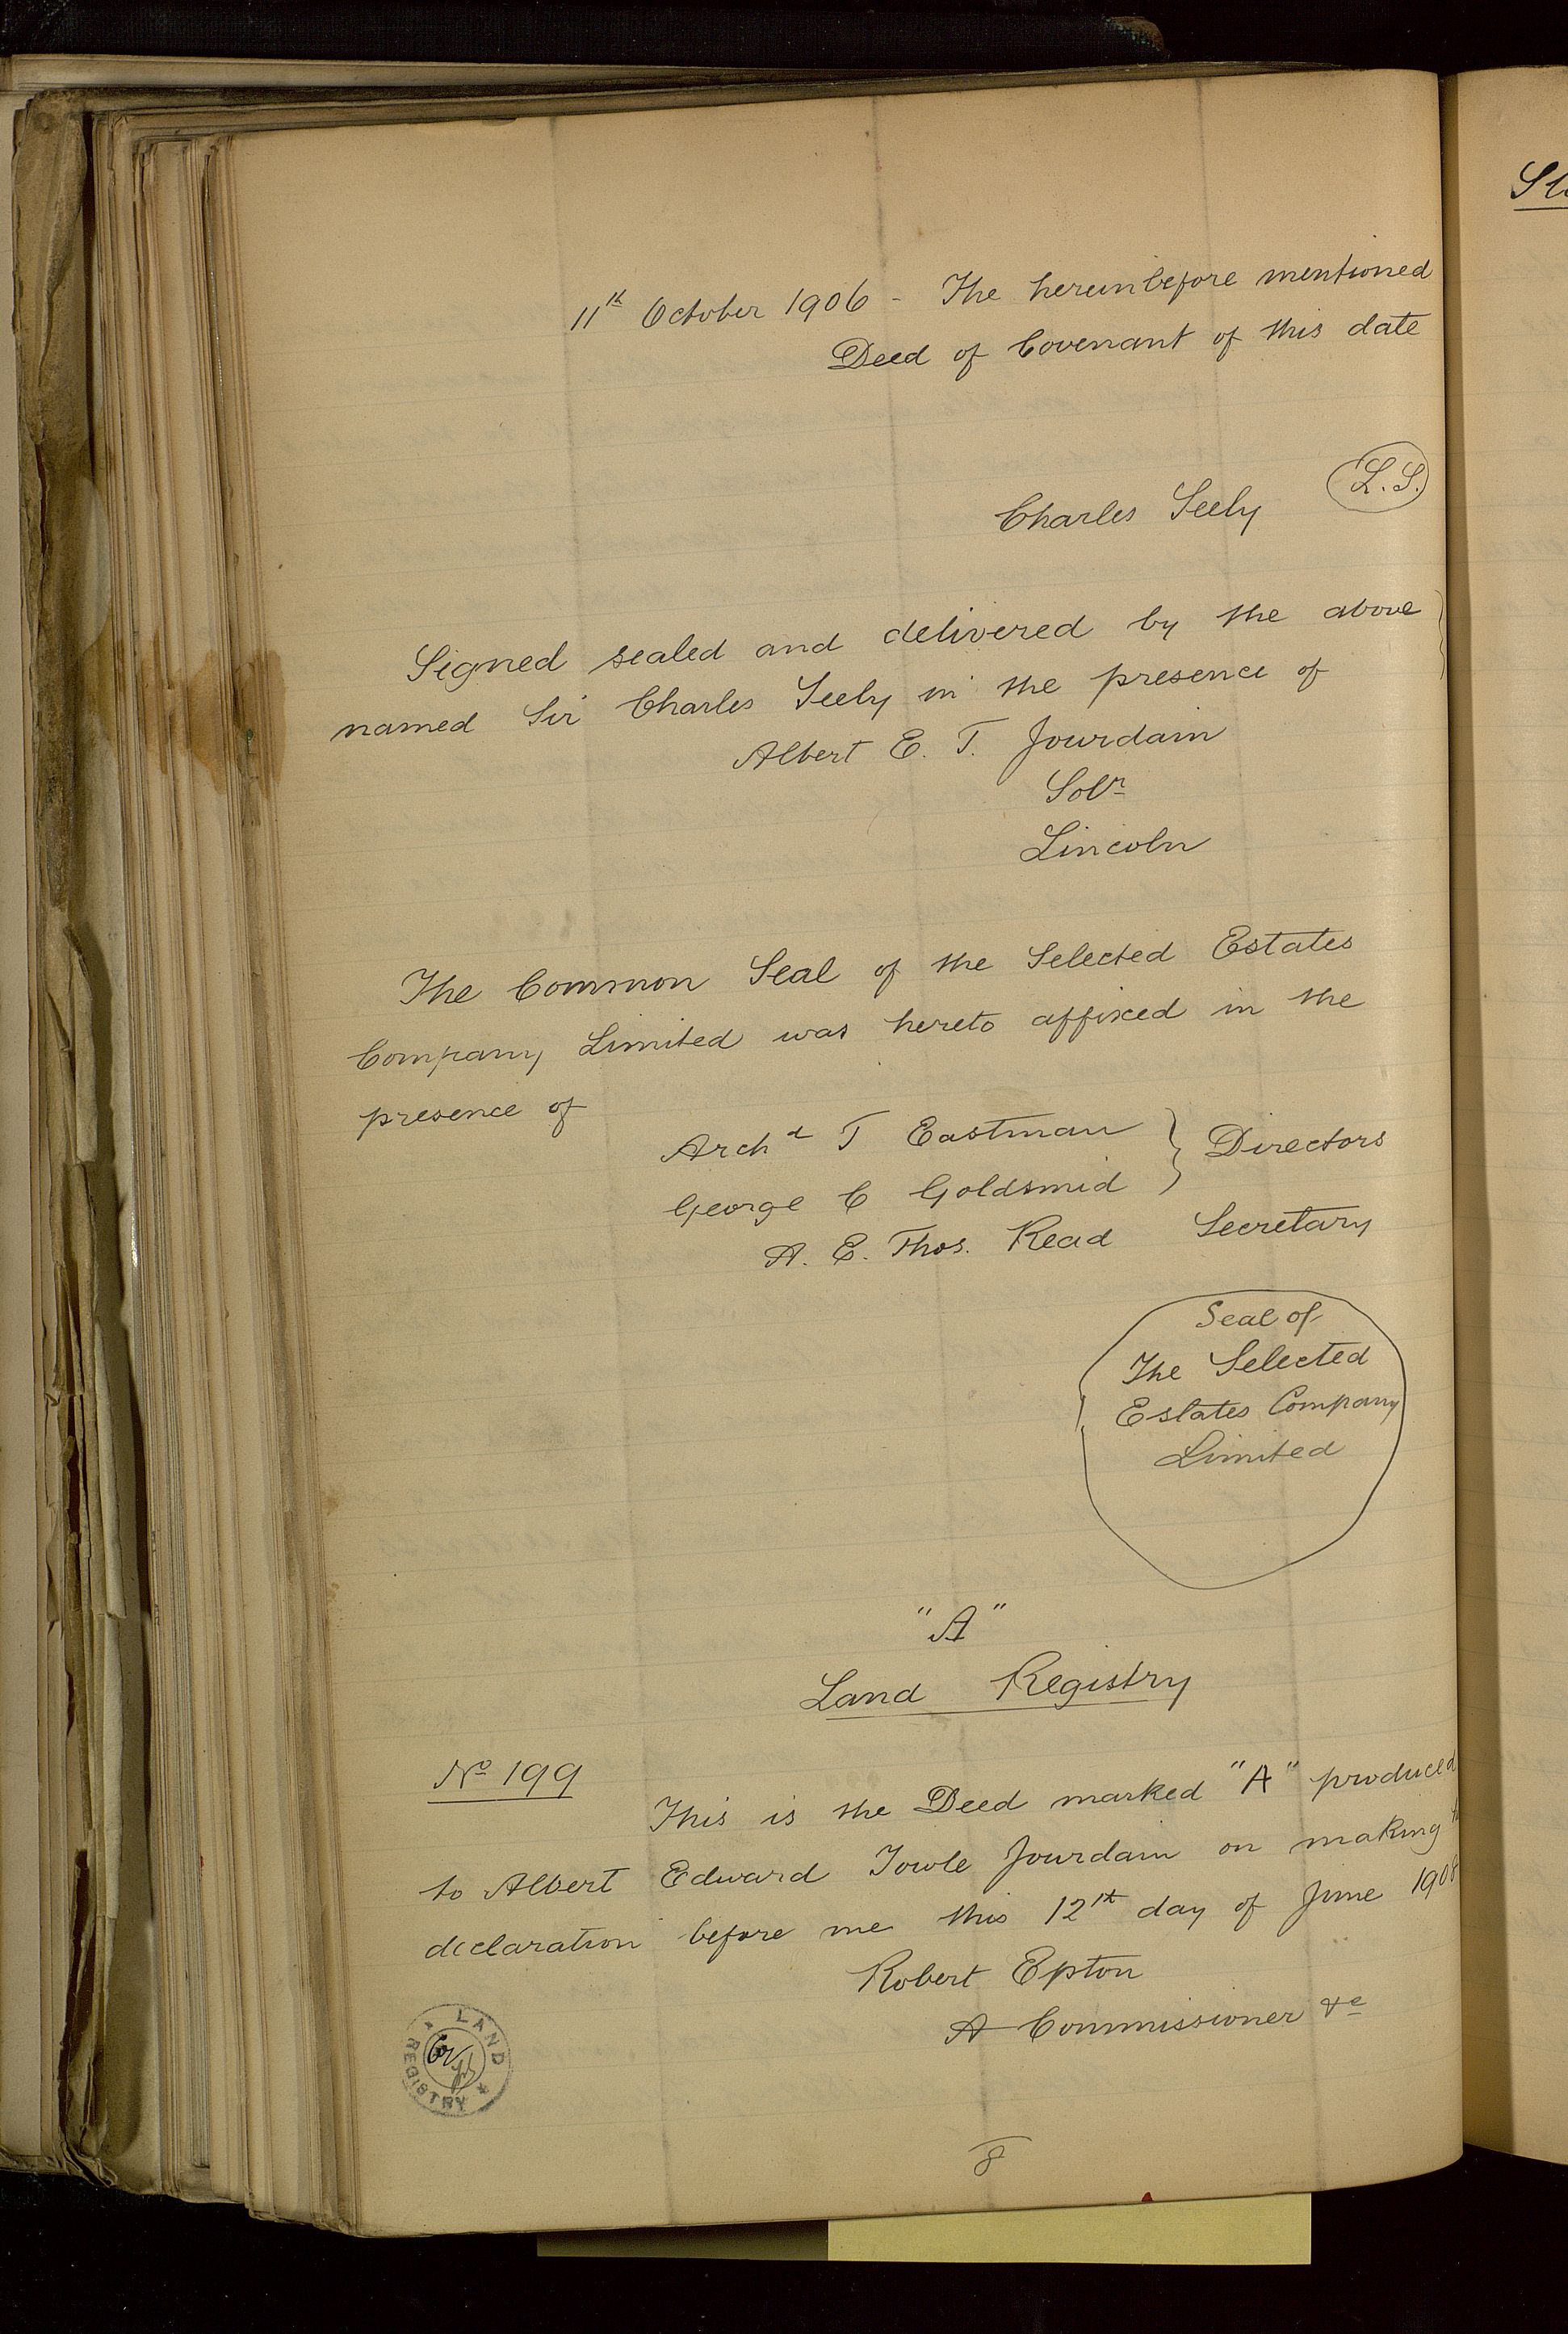 11th October 1906 - The hereinbefore mentioned
Deed of Covenant of this date
Charles Seely L.S.
Signed sealed and delivered by the above
named Sir Charles Seely in the presence of
Albert E. T. Jourdain
Solr
Lincoln
The Common Seal of the Selected Estates
Company Limited was hereto affixed in the
presence of
Archd T Eastman
George C Goldsmid
} Directors
A. E. Thos. Read Secretary
Seal of
The Selected
Estates Company
Limited
"A"
Land Registry
No 199
This is the Deed marked "A" produced
to Albert Edward Towle Jourdain on making
declaration before me this 12th day of June 1908
Robert Epton
A Commissioner &c
LAND REGISTRY
8